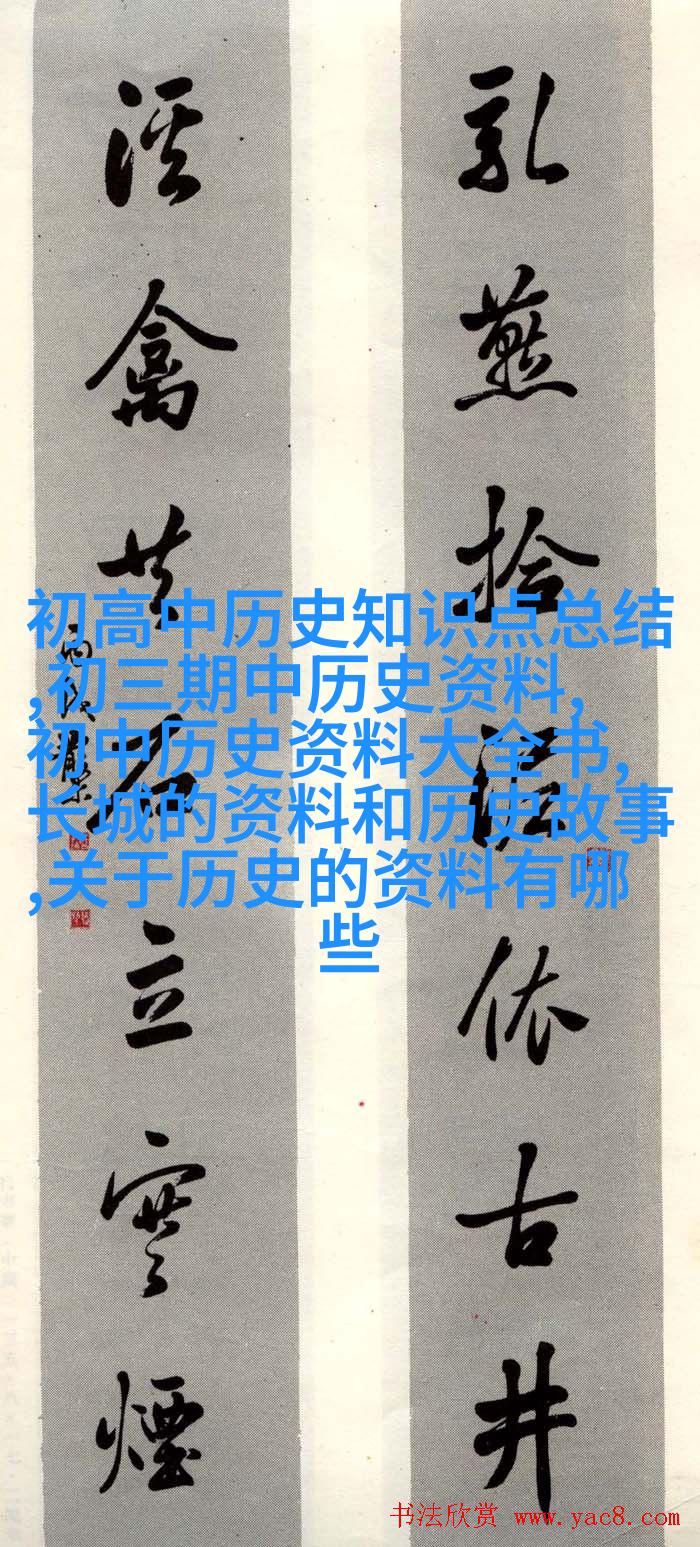 乳燕拾泥依古井
溪禽共石立寒煙
初高中历史知识点总结
,初三期中历史资料,
初中历史资料大全书,
长城的资料和历史故事
,关于历史的资料有哪
些
书法欣赏 www.yac8.com